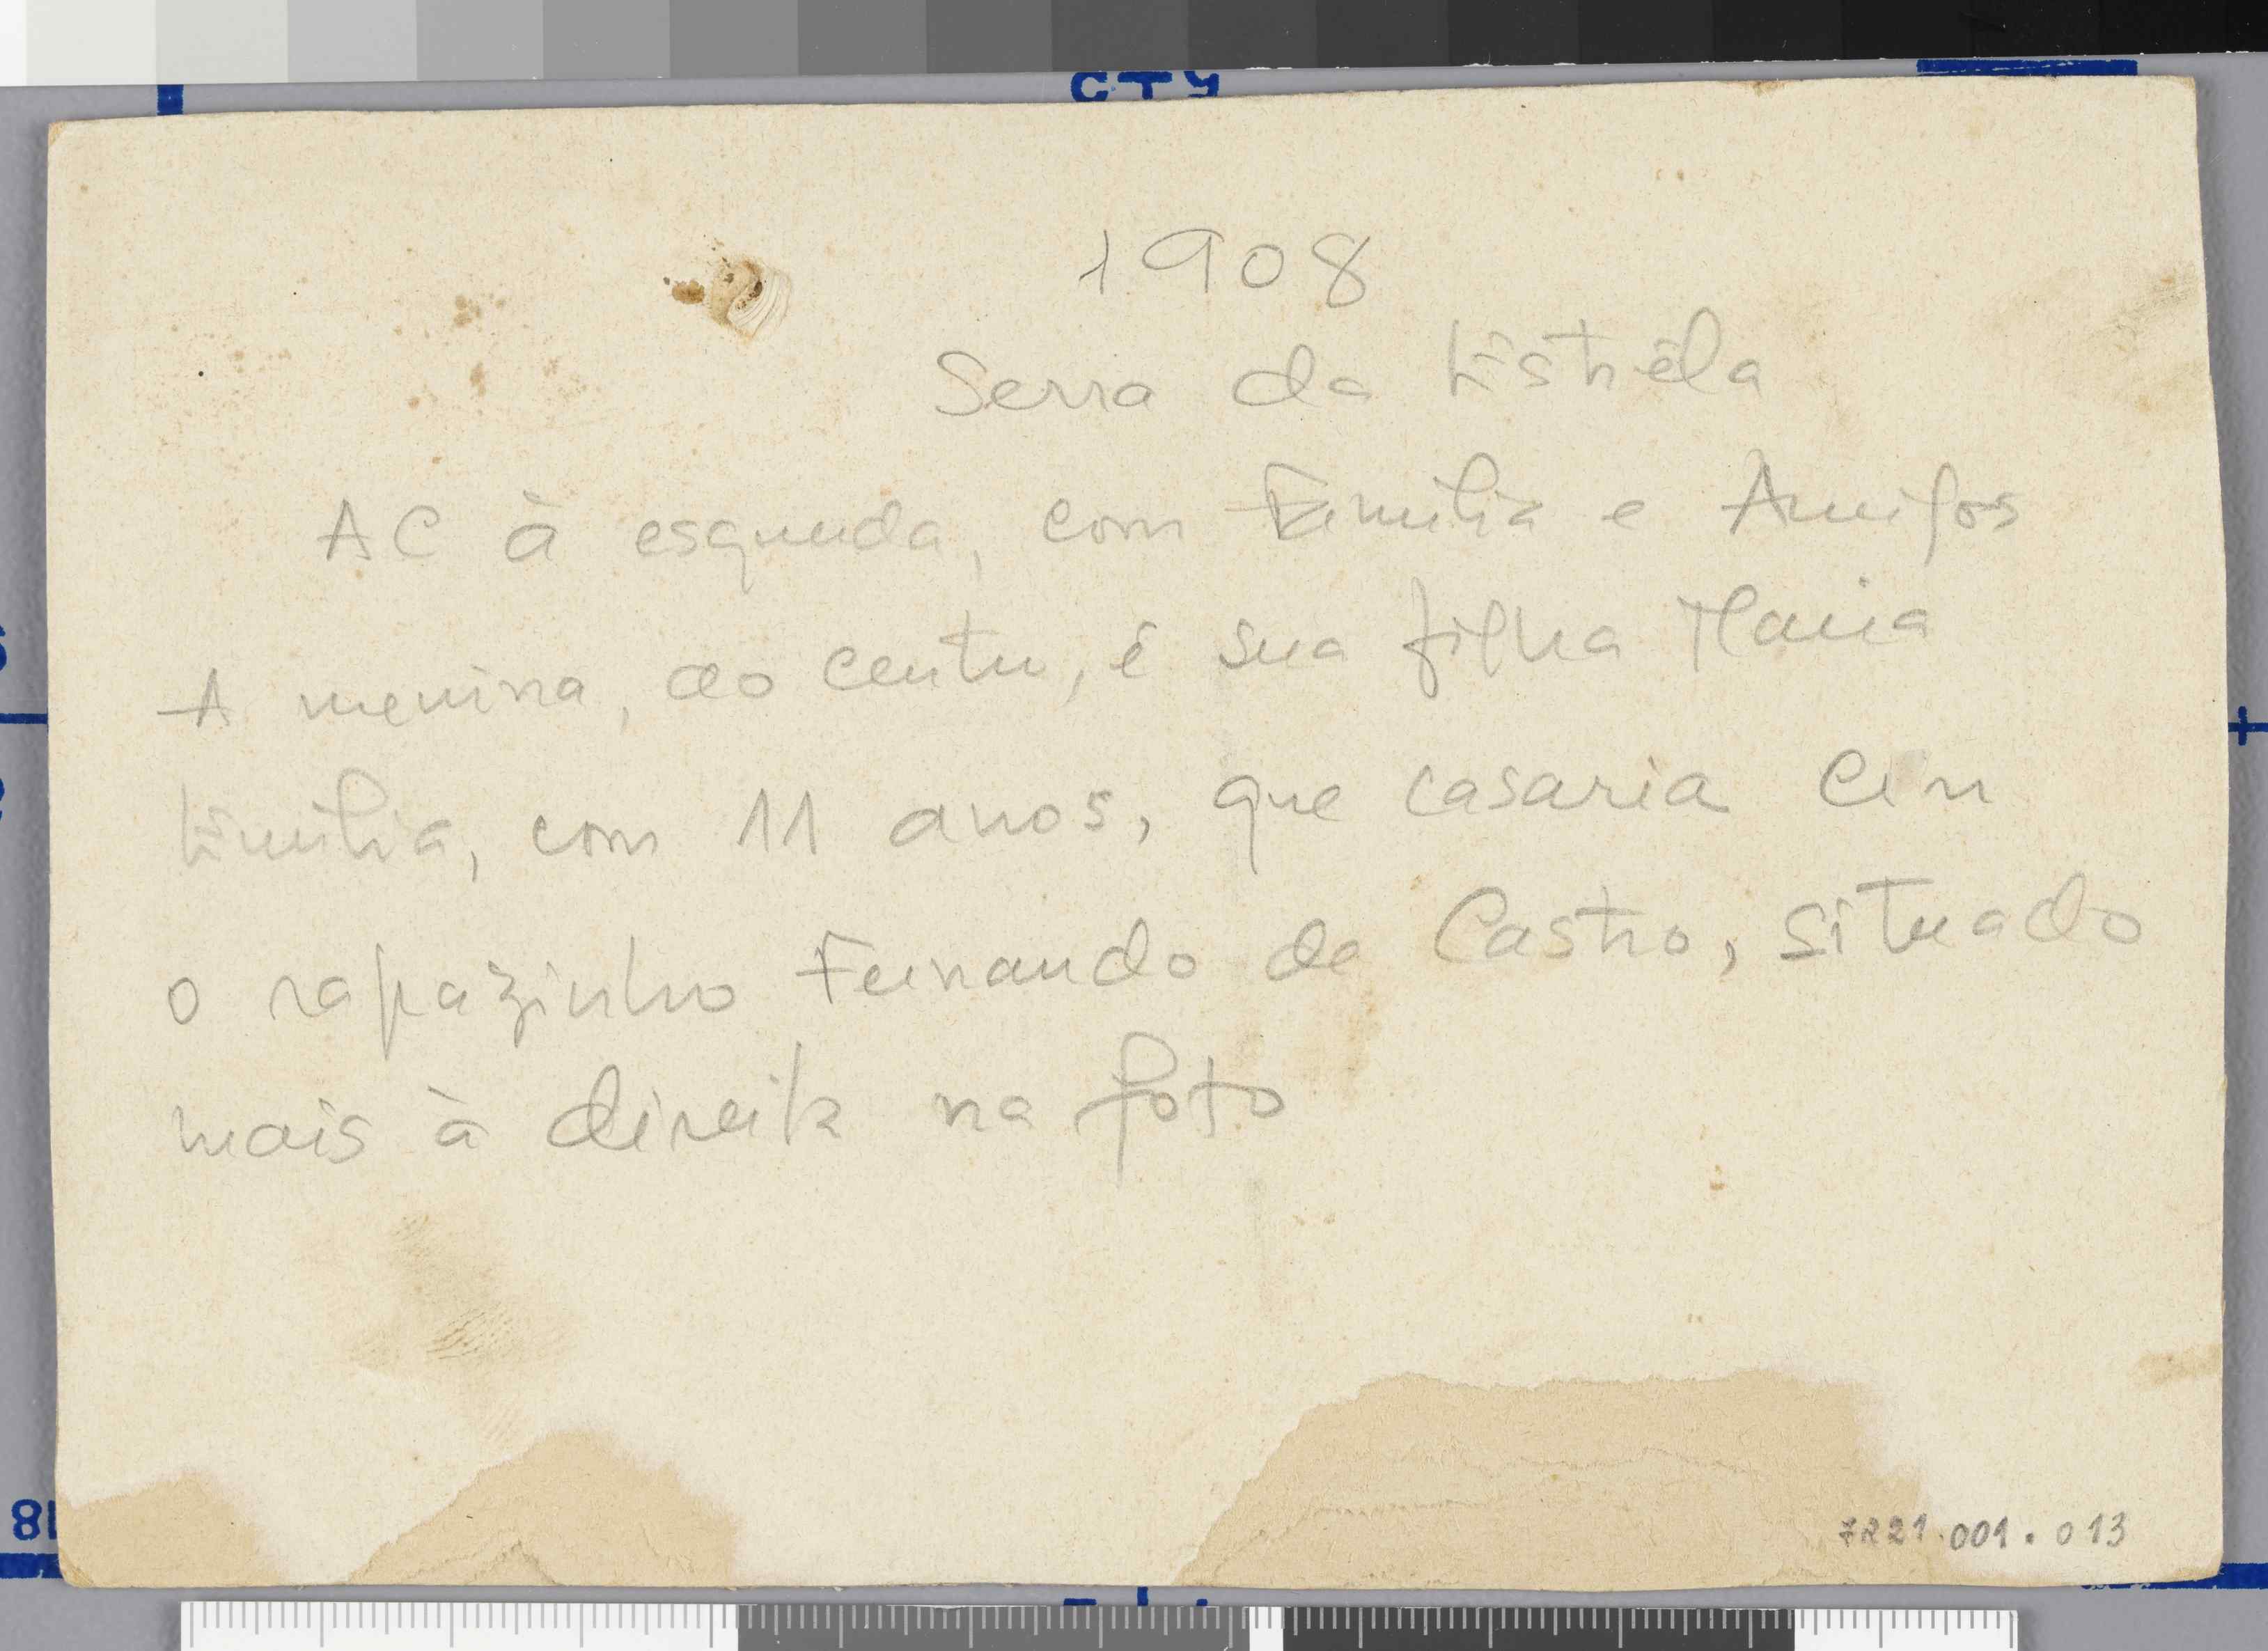 1908
Serra da Estrêla
AC à esquerda, com Família e Amigos
A menina, ao centro, é sua filha Maria
Emília, com 11 anos, que casaria com
o rapazinho Fernando de Castro, situado
mais à direita na foto
7221.001.013